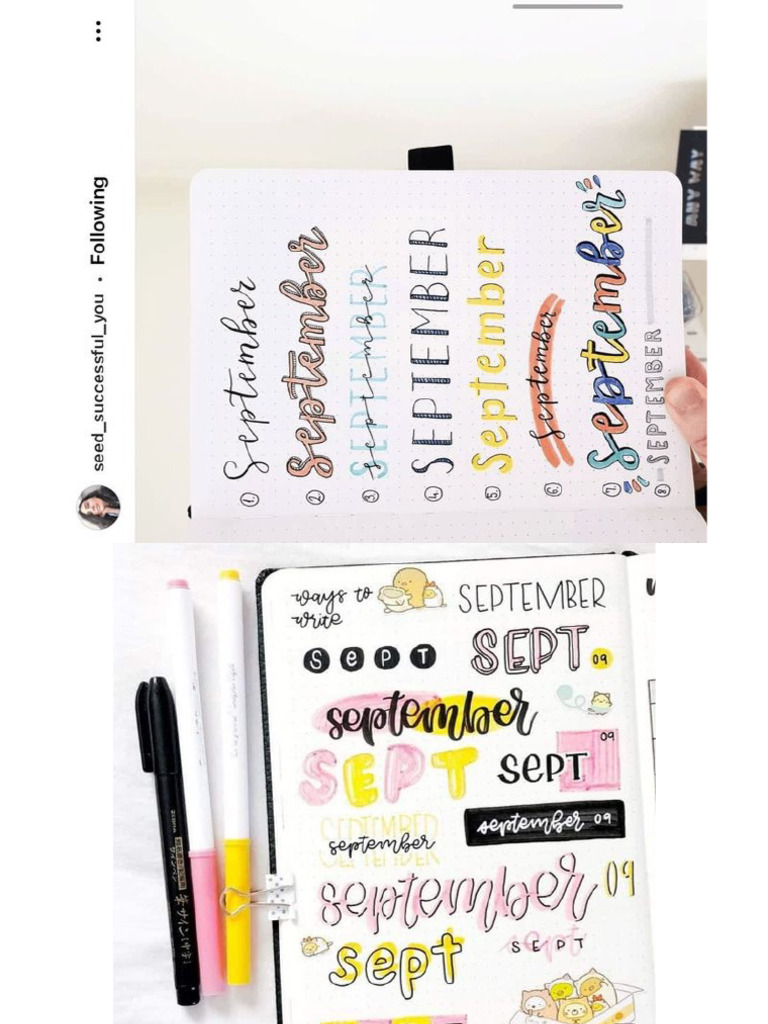 seed_successful_you • Following
ANY WAY
1. September
2. September
3. SEPTEMBER
september
4. SEPTEMBER
5. September
6. September
7. September
8. SEPTEMBER
ways to
write
SEPTEMBER
SePT
SEPT 09
september
SEPT
SEPT 09
SEPTEMBER
september
SEPTEMBER
september 09
september 09
sept
sept
SEPT
ZEBRA